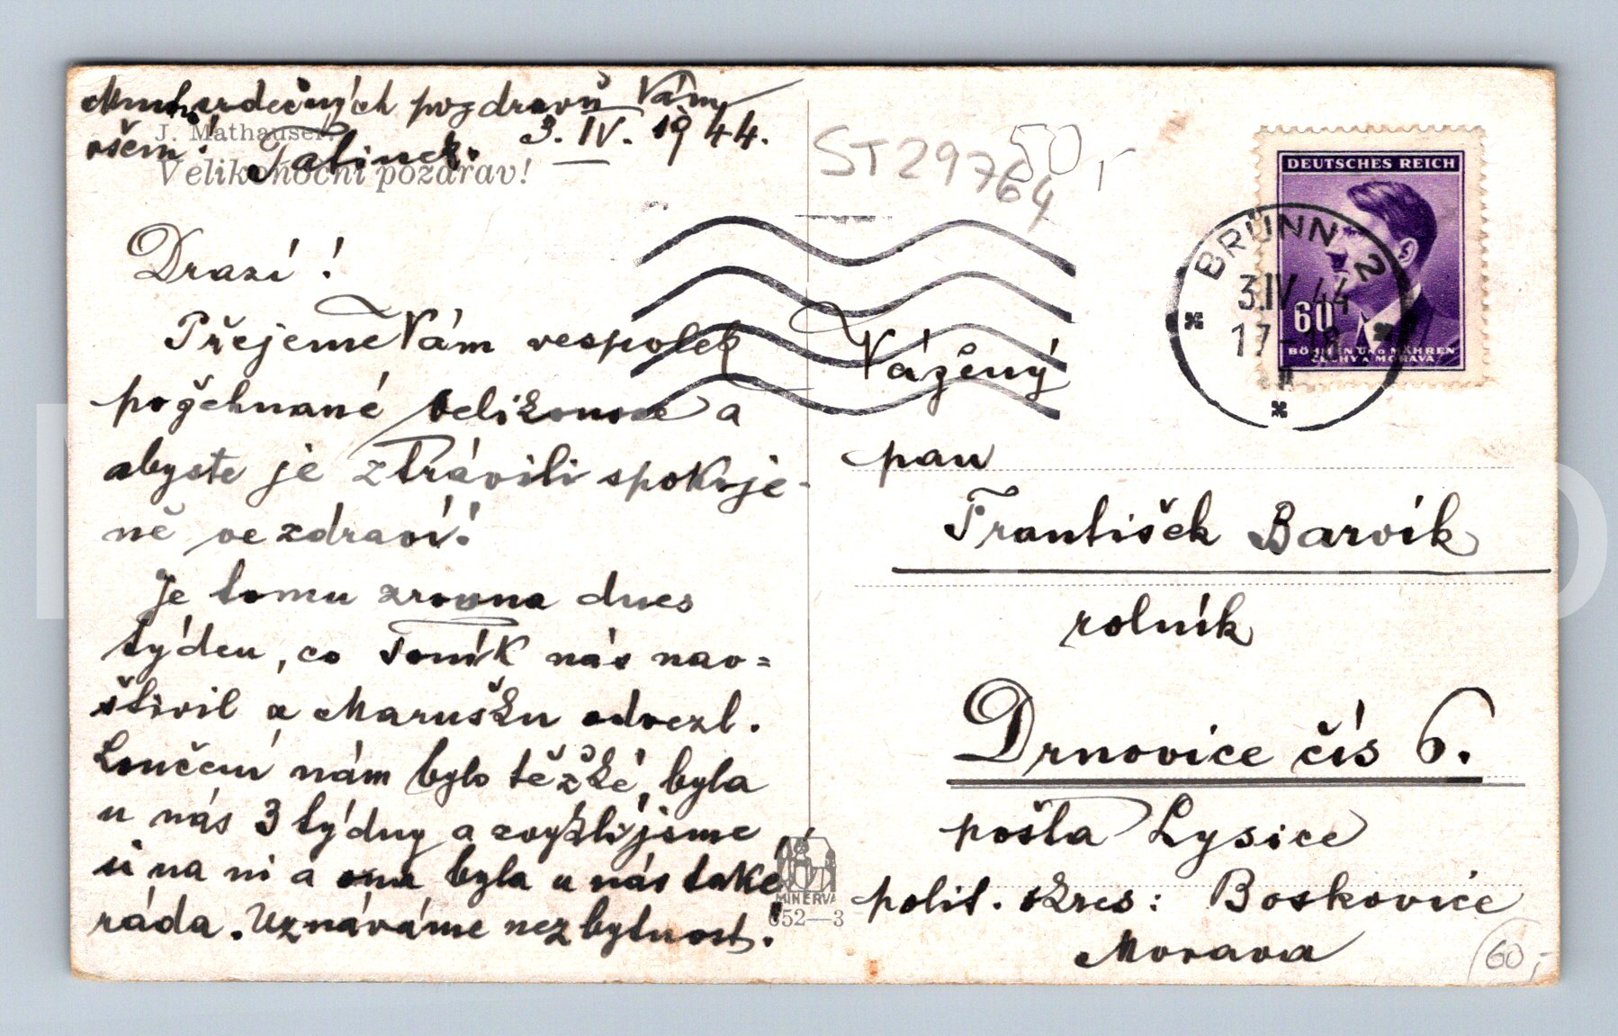 Mnoho srdečných pozdravů Vám
všem!
3. IV. 1944.
J. Mathauser:
Velikonoční pozdrav!
Drazí!
Přejeme Vám vespolek
požehnané velikonoce a
abyste je ztrávili spokoje-
ně ve zdraví!
Je tomu zrovna dnes
týden, co Toník nás nav=
štívil a Marušku odvezl.
Loučení nám bylo těžké, byla
u nás 3 týdny a zvykli jsme
si na ni a ona byla u nás také
ráda. Uznáváme nezbytnost!
ST29764
50,-
DEUTSCHES REICH
60
BÖHMEN UND MÄHREN
ČECHY A MORAVA
BRÜNN 2
3.IV.44
17-18
Vážený
pan
František Barvík
rolník
Drnovice čís 6.
pošta Lysice
polit. okres: Boskovice
Morava
MINERVA
652—3
60,-